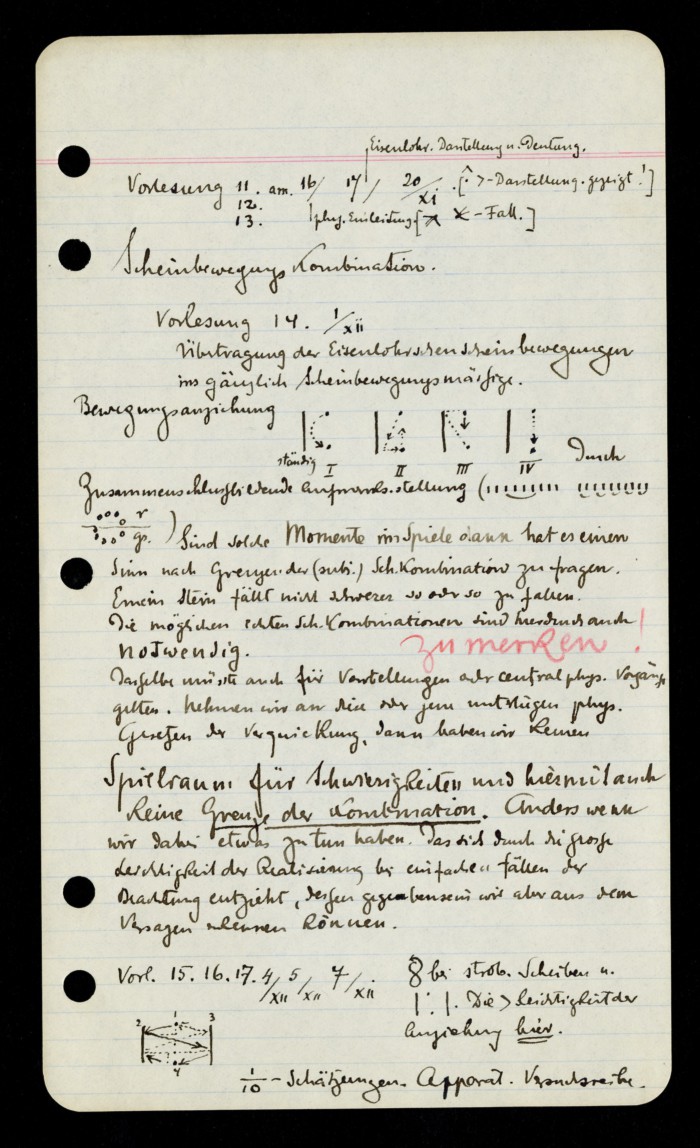 Eisenlohr. Darstellung u. Deutung.
Vorlesung 11. am. 16/ 17/ 20/XI . [ > -Darstellung. gezeigt! ]
12.
13. phys. Einleitung. [ - Fall. ]
Scheinbewegungs Kombination.
Vorlesung 14. 1/XII
Übertragung der Eisenlohrschen Scheinbewegungen
ins gänzlich Scheinbewegungsmässige.
Bewegungsanziehung
ständig I II III IV Durch
Zusammenschlussbildende Aufstellung (
r
gr. ) Sind solche Momente im Spiele dann hat es einen
Sinn nach Grenzen der (subj.) Sch. Kombination zu fragen.
Einem Stein fällt nicht schwerer so oder so zu fallen.
Die möglichen echten Sch. Kombinationen sind hierdurch auch
notwendig. zu merken!
Dasselbe müsste auch für Vorstellungen oder central phys. Vorgänge
gelten. Nehmen wir an sie oder jene unterliegen phys.
Gesetzen der Verquickung, dann haben wir keinen
Spielraum für Schwierigkeiten und hiermit auch
keine Grenze der Kombination. Anders wenn
wir dabei etwas zu tun haben. Das sich durch die grosse
Leichtigkeit der Realisierung bei einfachen Fällen der
Beachtung entzieht, dessen gegebensein wir aber aus dem
Versagen erkennen können.
Vorl. 15. 16. 17. 4/XII 5/XII 7/XII
8 bei strob. Scheiben u.
|:|. Die > Leichtigkeit der
Anziehung hier.
2 1 3
4
1/10 - Schätzungen. Apparat. Versuchsreihe.